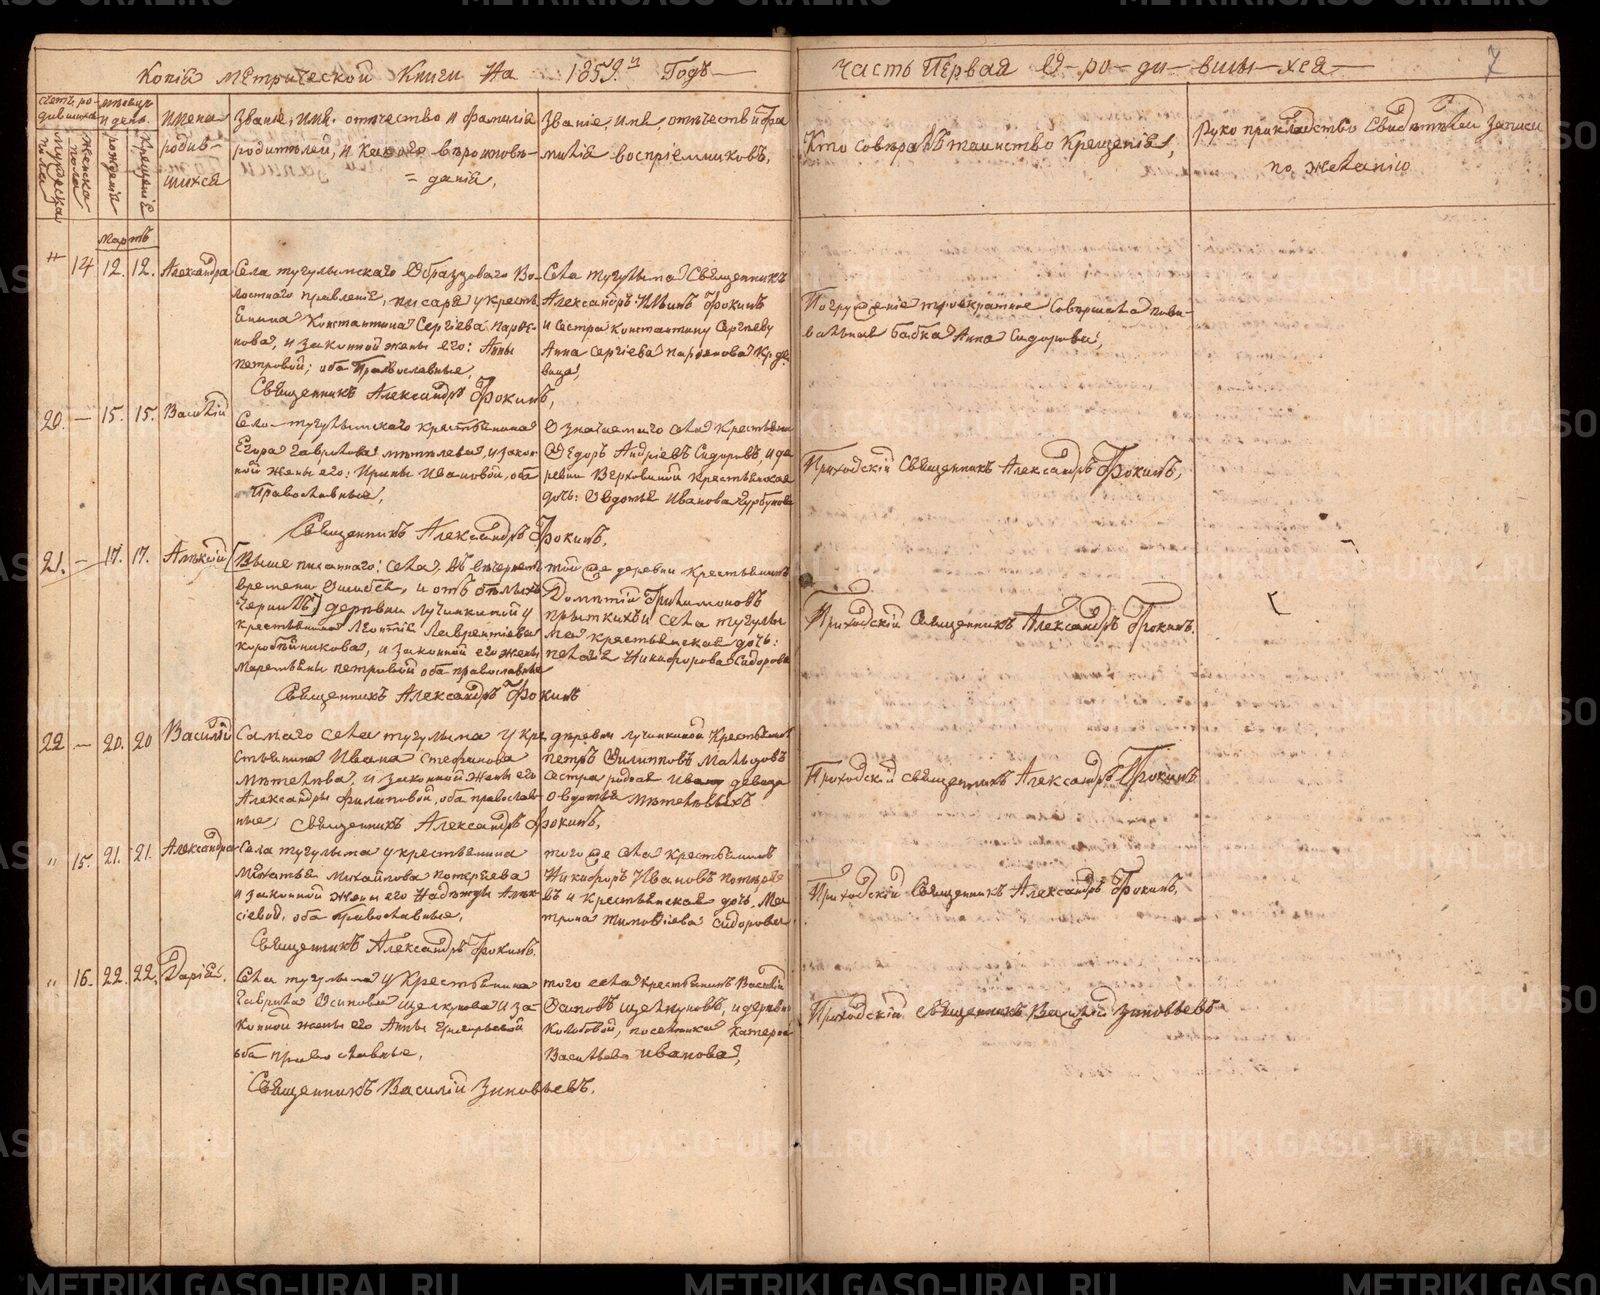 Копія метрической Книги На 1859й Годъ
Часть Первая О ро-ди-вшы-хся
7
счетъ ро-
дившихся
мужеска пола
женска пола
мѣсяцъ и день
рожденія
крещенія
Имена
родив-
шихся
Званіе, имя, отчество и фамилія
родителей, и какого вѣроисповѣ-
данія,
Званіе, имя, отчество и фа
милія воспріемниковъ,
Кто совершалъ таинство Крещенія,
Рукоприкладство Свидѣтелей Записи
по желанію
Мартъ
" 14 12. 12. Александра
Села тугулымскаго Образцоваго Во-
лостнаго правленія, писаря у крест
Константина Сергіева
и законной жены его: Анны
Петровой; оба Православные,
Священникъ Александръ Фокинъ,
Села тугулыма Священникъ
Александръ Фокинъ
и сестра константину Сергіеву
Анна Сергіева
вица,
Погруженіе троекратное Совершала пови-
вальная бабка Анна Сидорова,
20. — 15. 15. Василій
Села тугулымскаго крестьянина
Егора Гаврилова и закон
ной жены его: Ирины Ивановой, оба
Православные,
Священникъ Александръ Фокинъ,
Означеннаго села Крестьянинъ
Ѳедоръ Андріевъ Сидоровъ, и де
ревни Верховиной Крестьянская
дочь: Овдотья Иванова
Приходскій Священникъ Александръ Фокинъ,
21. — 17. 17. Алексій
[Выше писаннаго: села.
времени ошибся, и отъ бѣлыхъ
деревни лучинкиной у
крестьянина Леонтія Лаврентіева
коробейникова, и законной его жены
Маремьяны петровой оба православные
Священникъ Александръ Фокинъ
той же деревни крестьянинъ
Дометій
и села тугулы
ма крестьянская дочь:
пелагія Никифорова Сидорова
Приходскій Священникъ Александръ Фокинъ.
22 — 20. 20 Василій
Самаго села тугулыма у кре
стьянина Ивана Стефанова
и законной жены его
Александры филиповой, оба православ-
ные; Священникъ Александръ Фокинъ,
деревни лучинкиной Крестьянинъ
петръ Филипповъ Мальцовъ
сестра родная девица
Овдотья
Приходскій священникъ Александръ Фокинъ
" 15. 21. 21. Александра
Села тугулыма у крестьянина
Михайлова
и законной жены его Надежды Алек-
сіевой, оба Православные,
Священникъ Александръ Фокинъ.
того же села крестьянинъ
Никифоръ Ивановъ
въ и крестьянская дочь. Ма
трона Тимофіева Сидорова
Приходскій Священникъ Александръ Фокинъ,
" 16. 22. 22. Дарія.
Села тугулыма у Крестьянина
Гаврила Осипова щелкунова и за-
конной жены его Анны Григорьевой
оба православные,
Священникъ Василій Зиновьевъ.
того села крестьянинъ Василій
Осиповъ щелкуновъ, и деревни
Колобовой, поселенка катерина
Васильева иванова,
Приходскій. священникъ Василій Зиновьевъ
METRIKI.GASO-URAL.RU